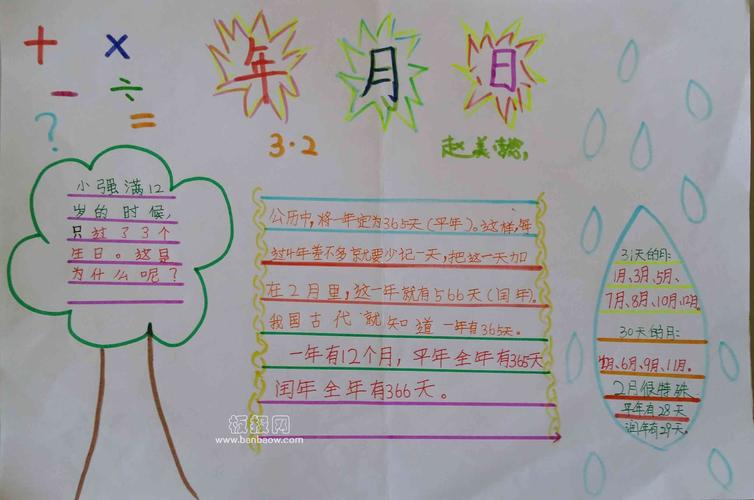 + × 年 月 日
- ÷
? =
3·2 赵美懿
小强满12
岁的时候,
只过了3个
生日。这是
为什么呢?
公历中,将一年定为365天(平年)。这样,每
过4年差不多就要少记一天,把这一天加
在2月里,这一年就有566天(闰年)。
我国古代就知道一年有365天。
一年有12个月,平年全年有365天
闰年全年有366天。
31天的月:
1月、3月、5月、
7月、8月、10月、12月。
30天的月:
4月、6月、9月、11月。
2月很特殊
平年有28天
闰年有29天。
板报网
www.banbaow.com